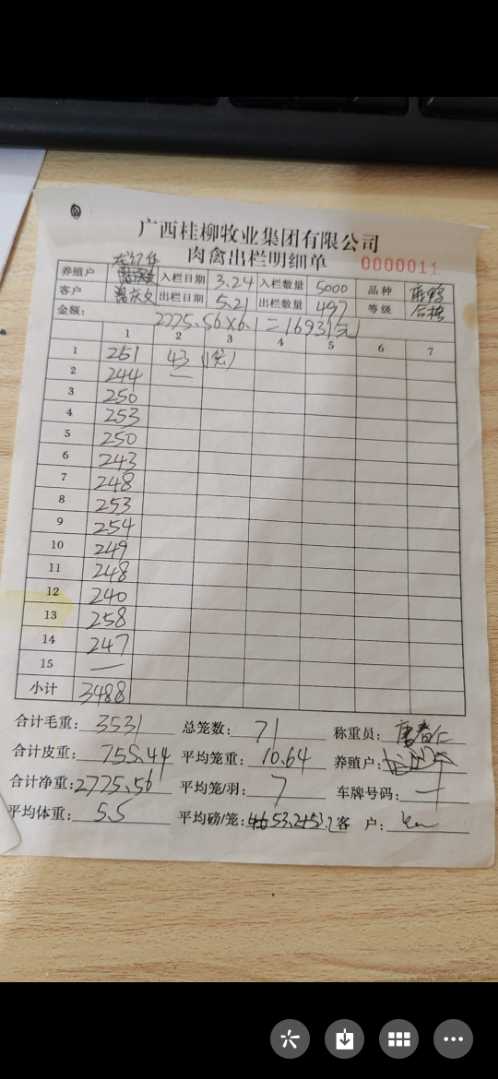 广西桂柳牧业集团有限公司
肉禽出栏明细单 0000011
养殖户 入栏日期 3.24 入栏数量 5000 品种
客户 出栏日期 5.21 出栏数量 497 等级 合格
金额: 2775.56×6.1=16931元
1 2 3 4 5 6 7
1 251 43 (1笼)
2 244 —
3 250
4 253
5 250
6 243
7 248
8 253
9 254
10 249
11 248
12 240
13 258
14 247
15 —
小计 3488
合计毛重: 3531 总笼数: 71 称重员:
合计皮重: 755.44 平均笼重: 10.64 养殖户:
合计净重: 2775.56 平均笼/羽: 7 车牌号码: 一
平均体重: 5.5 平均磅/笼: 客 户: